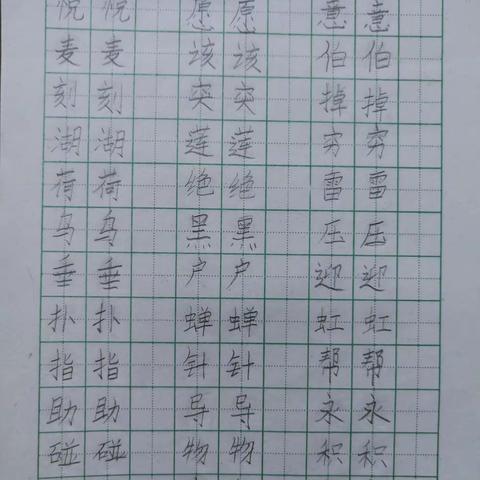 悦悦 愿愿 意意
麦麦 该该 伯伯
刻刻 突突 掉掉
湖湖 莲莲 穷穷
荷荷 绝绝 雷雷
鸟鸟 黑黑 压压
垂垂 户户 迎迎
扑扑 蝉蝉 虹虹
指指 针针 帮帮
助助 导导 永永
碰碰 物物 积积